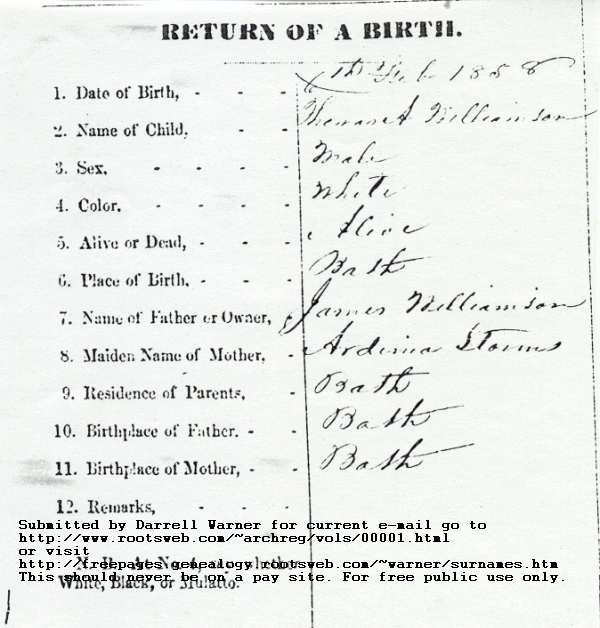 RETURN OF A BIRTH.
1. Date of Birth, - - - th Feb 1858
2. Name of Child, - - Thomas A Williamson
3. Sex, - - - - Male
4. Color, - - - - White
5. Alive or Dead, - - - Alive
6. Place of Birth, - - - Bath
7. Name of Father or Owner, James Williamson
8. Maiden Name of Mother, - Ardimia Storms
9. Residence of Parents, - - Bath
10. Birthplace of Father. - - Bath
11. Birthplace of Mother, - - Bath
12. Remarks, - - -
Submitted by Darrell Warner for current e-mail go to
http://www.rootsweb.com/~archreg/vols/00001.html
or visit
http://freepages.genealogy.rootsweb.com/~warner/surnames.htm
This should never be on a pay site. For free public use only.
White, Black, or Mulatto.